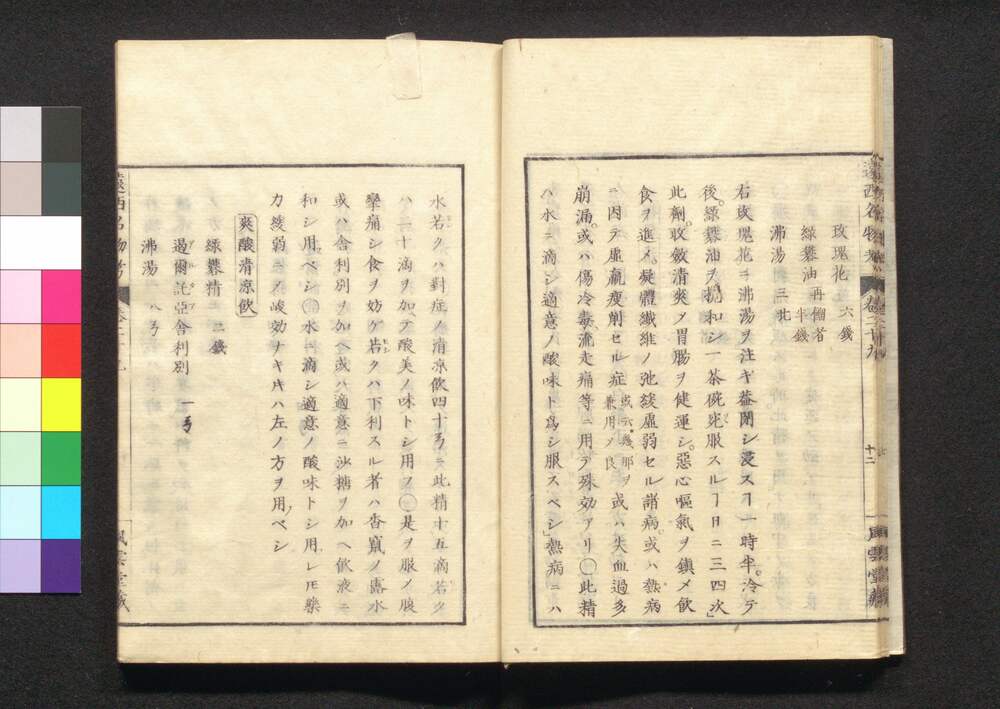 遠西名物考 卷三十九 十二 風雲堂藏
玫瑰花 六錢
綠礬油 再餾者半錢
沸湯 三比
右玫瑰花ニ沸湯ヲ注ギ蓋閉シ浸スヿ一時半。冷テ
後。綠礬油ヲ和シ一茶碗宛服スルヿ日ニ三四次」
此劑。收斂清爽メ胃腸ヲ健運シ。惡心嘔氣ヲ鎮メ飲
食ヲ進メ凝體纖維ノ弛緩虛弱セル諸病。或ハ熱病
ニ因テ虛羸瘦削セル症 或云幾那ヲ兼用メ良 或ハ失血過多
崩漏。或ハ傷冷毒流走痛等ニ用テ殊効アリ〇此精
ハ水ニ滴シ適意ノ酸味ト爲シ服スベシ」熱病ニハ
水若クハ對症ノ清凉飲四十ヲニ此精十五滴若ク
ハ二十滴ヲ加テ酸美ノ味トシ用フ〇是ヲ服メ腹
攣痛シ食ヲ妨ゲ若クハ下利スル者ハ香竄ノ露水
或ハ舎利別ヲ加ヘ或ハ適意ニ沙糖ヲ加ヘ飲液ニ
和シ用ベシ〇水ニ滴シ適意ノ酸味トシ用レ𪜈藥
力緩弱ニメ峻効ナキ𪜈ハ左ノ方ヲ用ベシ
爽酸清凉飲
綠礬精 二錢
過爾託亞舎利別 一ヲ
沸湯 八ヲ
遠西名物考
風雲堂藏